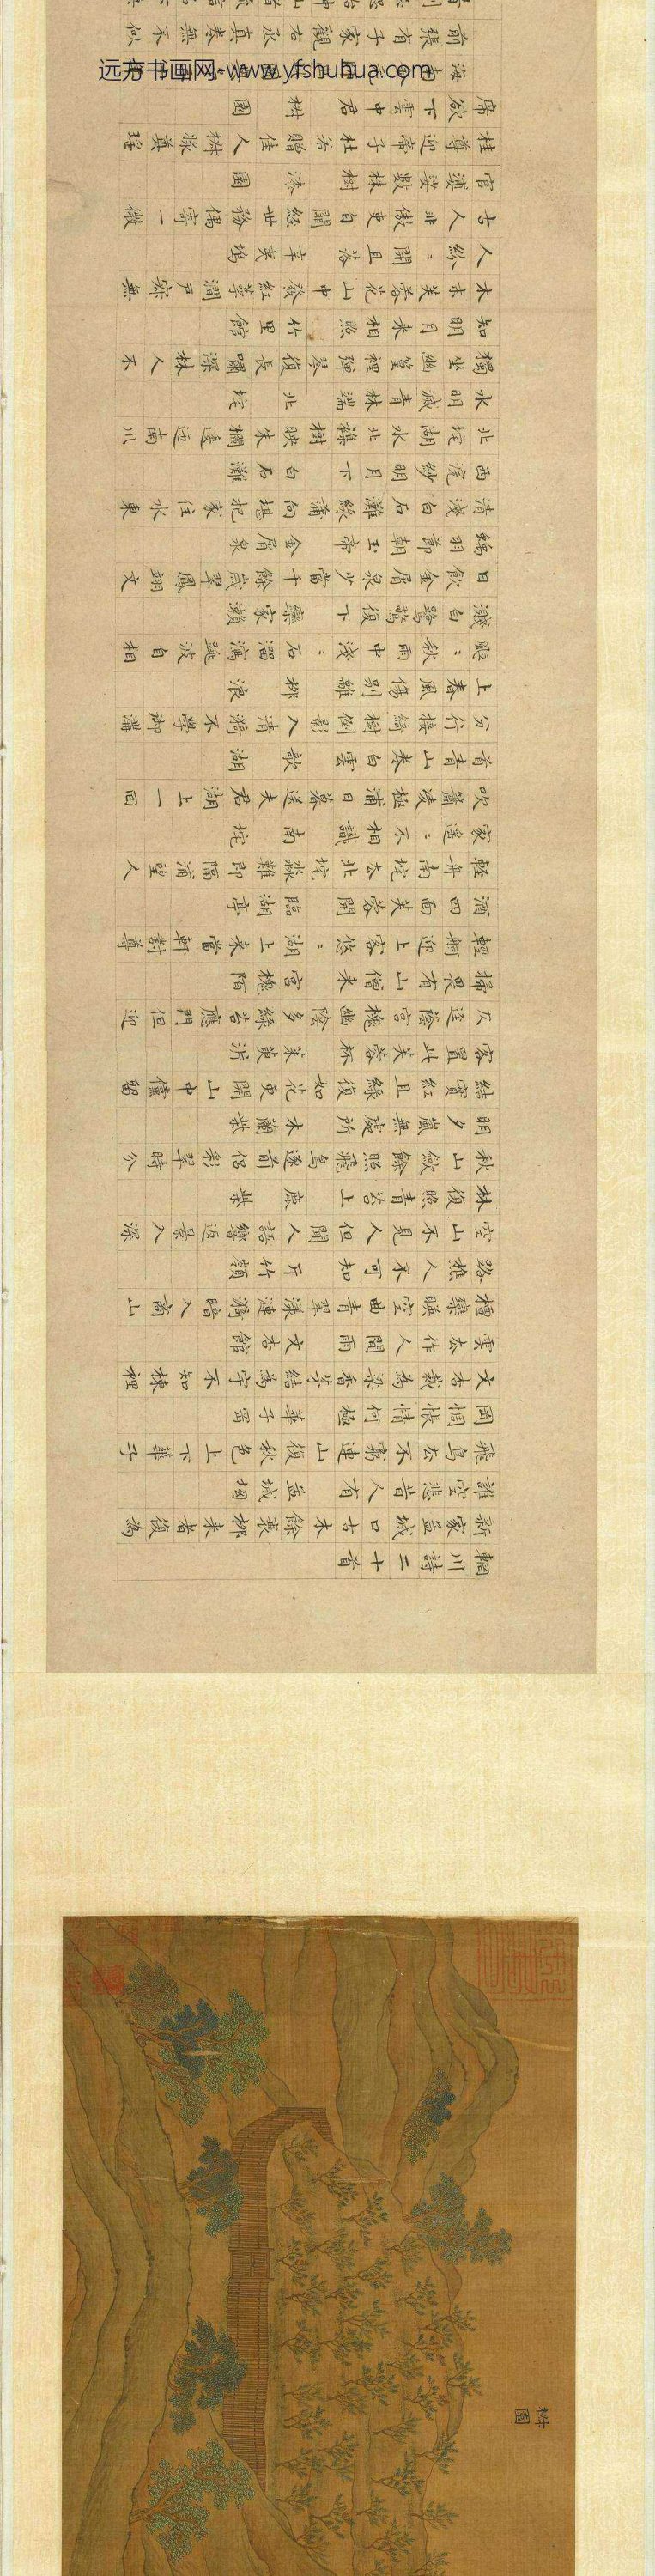 远方书画网-www.yfshuhua.com
輞川詩二十首
新家孟城口古木餘衰柳来者復為
誰空悲昔人有 孟城坳
飛鳥去不窮連山復秋色上下華子
岡惆悵情何極 華子岡
文杏裁為梁香茅結為宇不知棟裡
雲去作人間雨 文杏館
檀欒暎空曲青翠漾漣漪暗入商山
路樵人不可知 斤竹嶺
空山不見人但聞人語響返景入深
林復照青苔上 鹿柴
秋山斂餘照飛鳥逐前侶彩翠時分
明夕嵐無處所 木蘭柴
結實紅且綠復如花更開山中儻留
客置此芙蓉杯 茱萸沜
仄逕蔭宮槐幽陰多綠苔應門但迎
掃畏有山僧来 宮槐陌
輕舸迎上客悠:湖上来當軒對尊
酒四面芙蓉開 臨湖亭
輕舟南垞去北垞淼難即隔浦望人
家遙:不相識 南垞
吹簫凌極浦日暮送夫君湖上一回
首青山卷白雲 欹湖
分行接綺樹倒影入清漪不學御溝
上春風傷別離 柳浪
颯:秋雨中淺:石溜瀉跳波自相
濺白鷺驚復下 欒家瀨
日飲金屑泉少當千餘歲翠鳳翊文
螭羽節朝玉帝 金屑泉
清淺白石灘綠蒲向堪把家住水東
西浣紗明月下 白石灘
北垞湖水北雜樹映朱欄逶迤南川
水明滅青林端 北垞
獨坐幽篁裡彈琴復長嘯深林人不
知明月来相照 竹里館
木末芙蓉花山中發紅萼澗戶寂無
人紛:開且落 辛夷塢
古人非傲吏自闕經世務偶寄一微
官婆娑數株樹 漆園
桂尊迎帝子杜若贈佳人椒漿奠瑤
席欲下雲中君 椒園
椒園